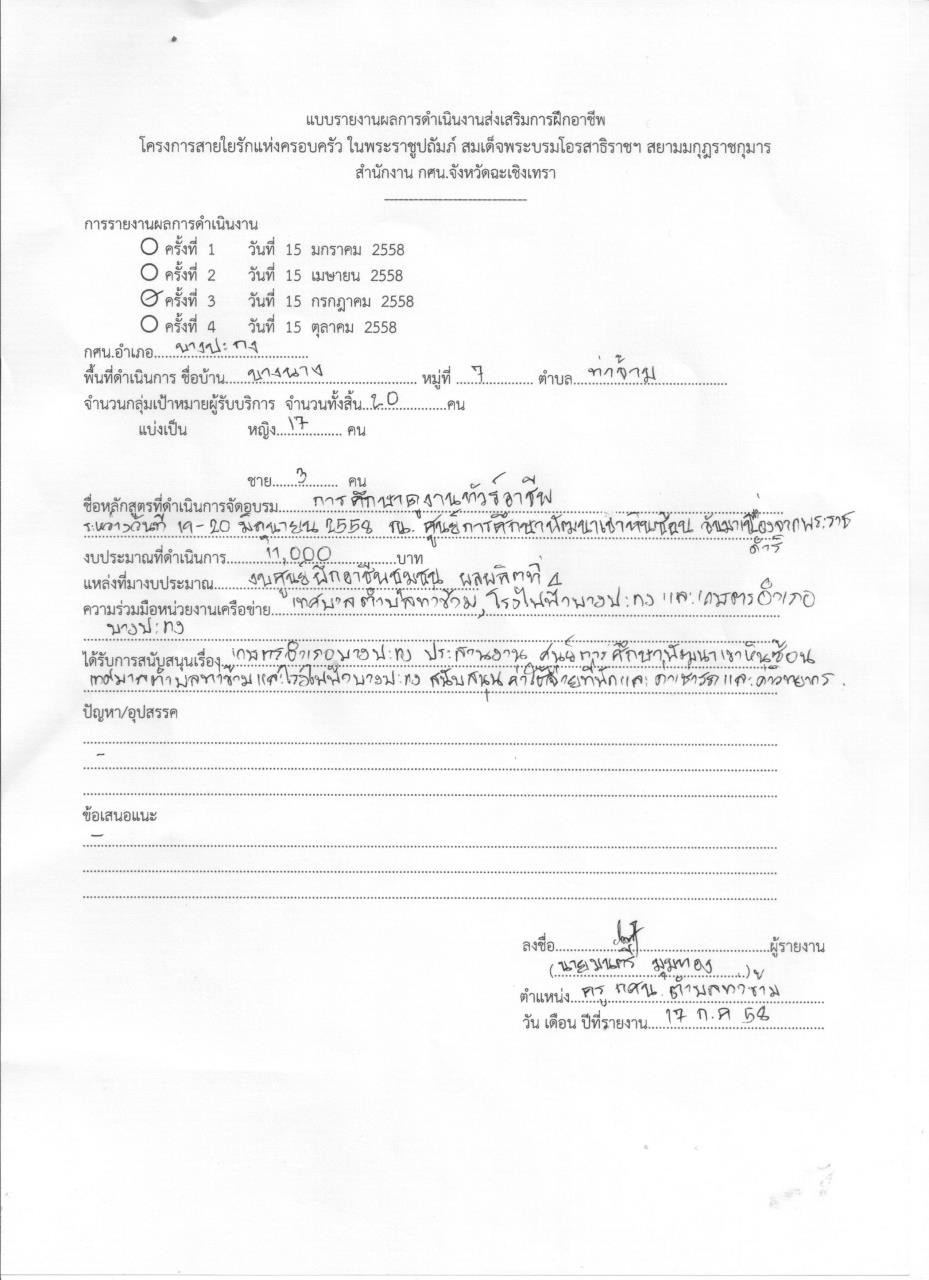 แบบรายงานผลการดำเนินงานส่งเสริมการฝึกอาชีพ
โครงการสายใยรักแห่งครอบครัว ในพระราชูปถัมภ์ สมเด็จพระบรมโอรสาธิราชฯ สยามมกุฎราชกุมาร
สำนักงาน กศน.จังหวัดฉะเชิงเทรา
----------------------------
การรายงานผลการดำเนินงาน
ครั้งที่ 1 วันที่ 15 มกราคม 2558
ครั้งที่ 2 วันที่ 15 เมษายน 2558
ครั้งที่ 3 วันที่ 15 กรกฎาคม 2558
ครั้งที่ 4 วันที่ 15 ตุลาคม 2558
กศน.อำเภอ บางปะกง
พื้นที่ดำเนินการ ชื่อบ้าน บางนาง หมู่ที่ 7 ตำบล ท่าข้าม
จำนวนกลุ่มเป้าหมายผู้รับบริการ จำนวนทั้งสิ้น 20 คน
แบ่งเป็น หญิง 17 คน
ชาย 3 คน
ชื่อหลักสูตรที่ดำเนินการจัดอบรม การศึกษาดูงานทัวร์อาชีพ
ระหว่างวันที่ 19-20 มิถุนายน 2558 ณ. ศูนย์การศึกษาพัฒนาเขาหินซ้อน อันมาเนื่องจากพระราช
ดำริ
งบประมาณที่ดำเนินการ 11,000 บาท
แหล่งที่มางบประมาณ งบศูนย์ฝึกอาชีพชุมชน ผลผลิตที่ 4
ความร่วมมือหน่วยงานเครือข่าย เทศบาลตำบลท่าข้าม, โรงไฟฟ้าบางปะกง และเกษตรอำเภอ
บางปะกง
ได้รับการสนับสนุนเรื่อง เกษตรอำเภอบางปะกง ประสานงาน ศูนย์การศึกษาพัฒนาเขาหินซ้อน
เทศบาลตำบลท่าข้ามและโรงไฟฟ้าบางปะกง สนับสนุน ค่าใช้จ่ายที่พักและ ค่าเช่ารถและค่าวิทยากร.
ปัญหา/อุปสรรค
-
ข้อเสนอแนะ
-
ลงชื่อ ผู้รายงาน
(นายมนตรี มุมทอง)
ตำแหน่ง ครู กศน. ตำบลท่าข้าม
วัน เดือน ปีที่รายงาน 17 ก.ค 58